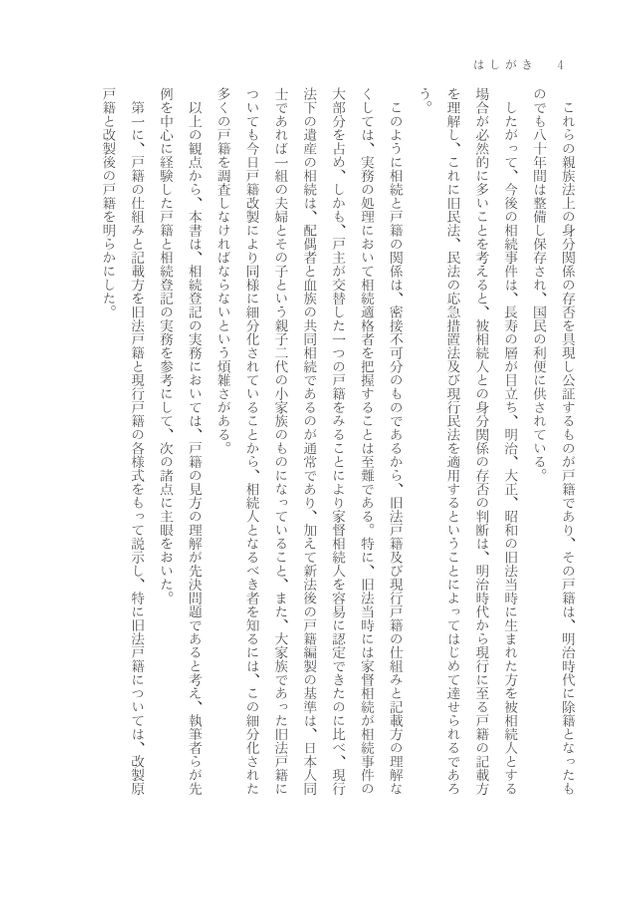 はしがき　4
　これらの親族法上の身分関係の存否を具現し公証するものが戸籍であり、その戸籍は、明治時代に除籍となったも
のでも八十年間は整備し保存され、国民の利便に供されている。
　したがって、今後の相続事件は、長寿の層が目立ち、明治、大正、昭和の旧法当時に生まれた方を被相続人とする
場合が必然的に多いことを考えると、被相続人との身分関係の存否の判断は、明治時代から現行に至る戸籍の記載方
を理解し、これに旧民法、民法の応急措置法及び現行民法を適用するということによってはじめて達せられるであろ
う。
　このように相続と戸籍の関係は、密接不可分のものであるから、旧法戸籍及び現行戸籍の仕組みと記載方の理解な
くしては、実務の処理において相続適格者を把握することは至難である。特に、旧法当時には家督相続が相続事件の
大部分を占め、しかも、戸主が交替した一つの戸籍をみることにより家督相続人を容易に認定できたのに比べ、現行
法下の遺産の相続は、配偶者と血族の共同相続であるのが通常であり、加えて新法後の戸籍編製の基準は、日本人同
士であれば一組の夫婦とその子という親子二代の小家族のものになっていること、また、大家族であった旧法戸籍に
ついても今日戸籍改製により同様に細分化されていることから、相続人となるべき者を知るには、この細分化された
多くの戸籍を調査しなければならないという煩雑さがある。
　以上の観点から、本書は、相続登記の実務においては、戸籍の見方の理解が先決問題であると考え、執筆者らが先
例を中心に経験した戸籍と相続登記の実務を参考にして、次の諸点に主眼をおいた。
　第一に、戸籍の仕組みと記載方を旧法戸籍と現行戸籍の各様式をもって説示し、特に旧法戸籍については、改製原
戸籍と改製後の戸籍を明らかにした。